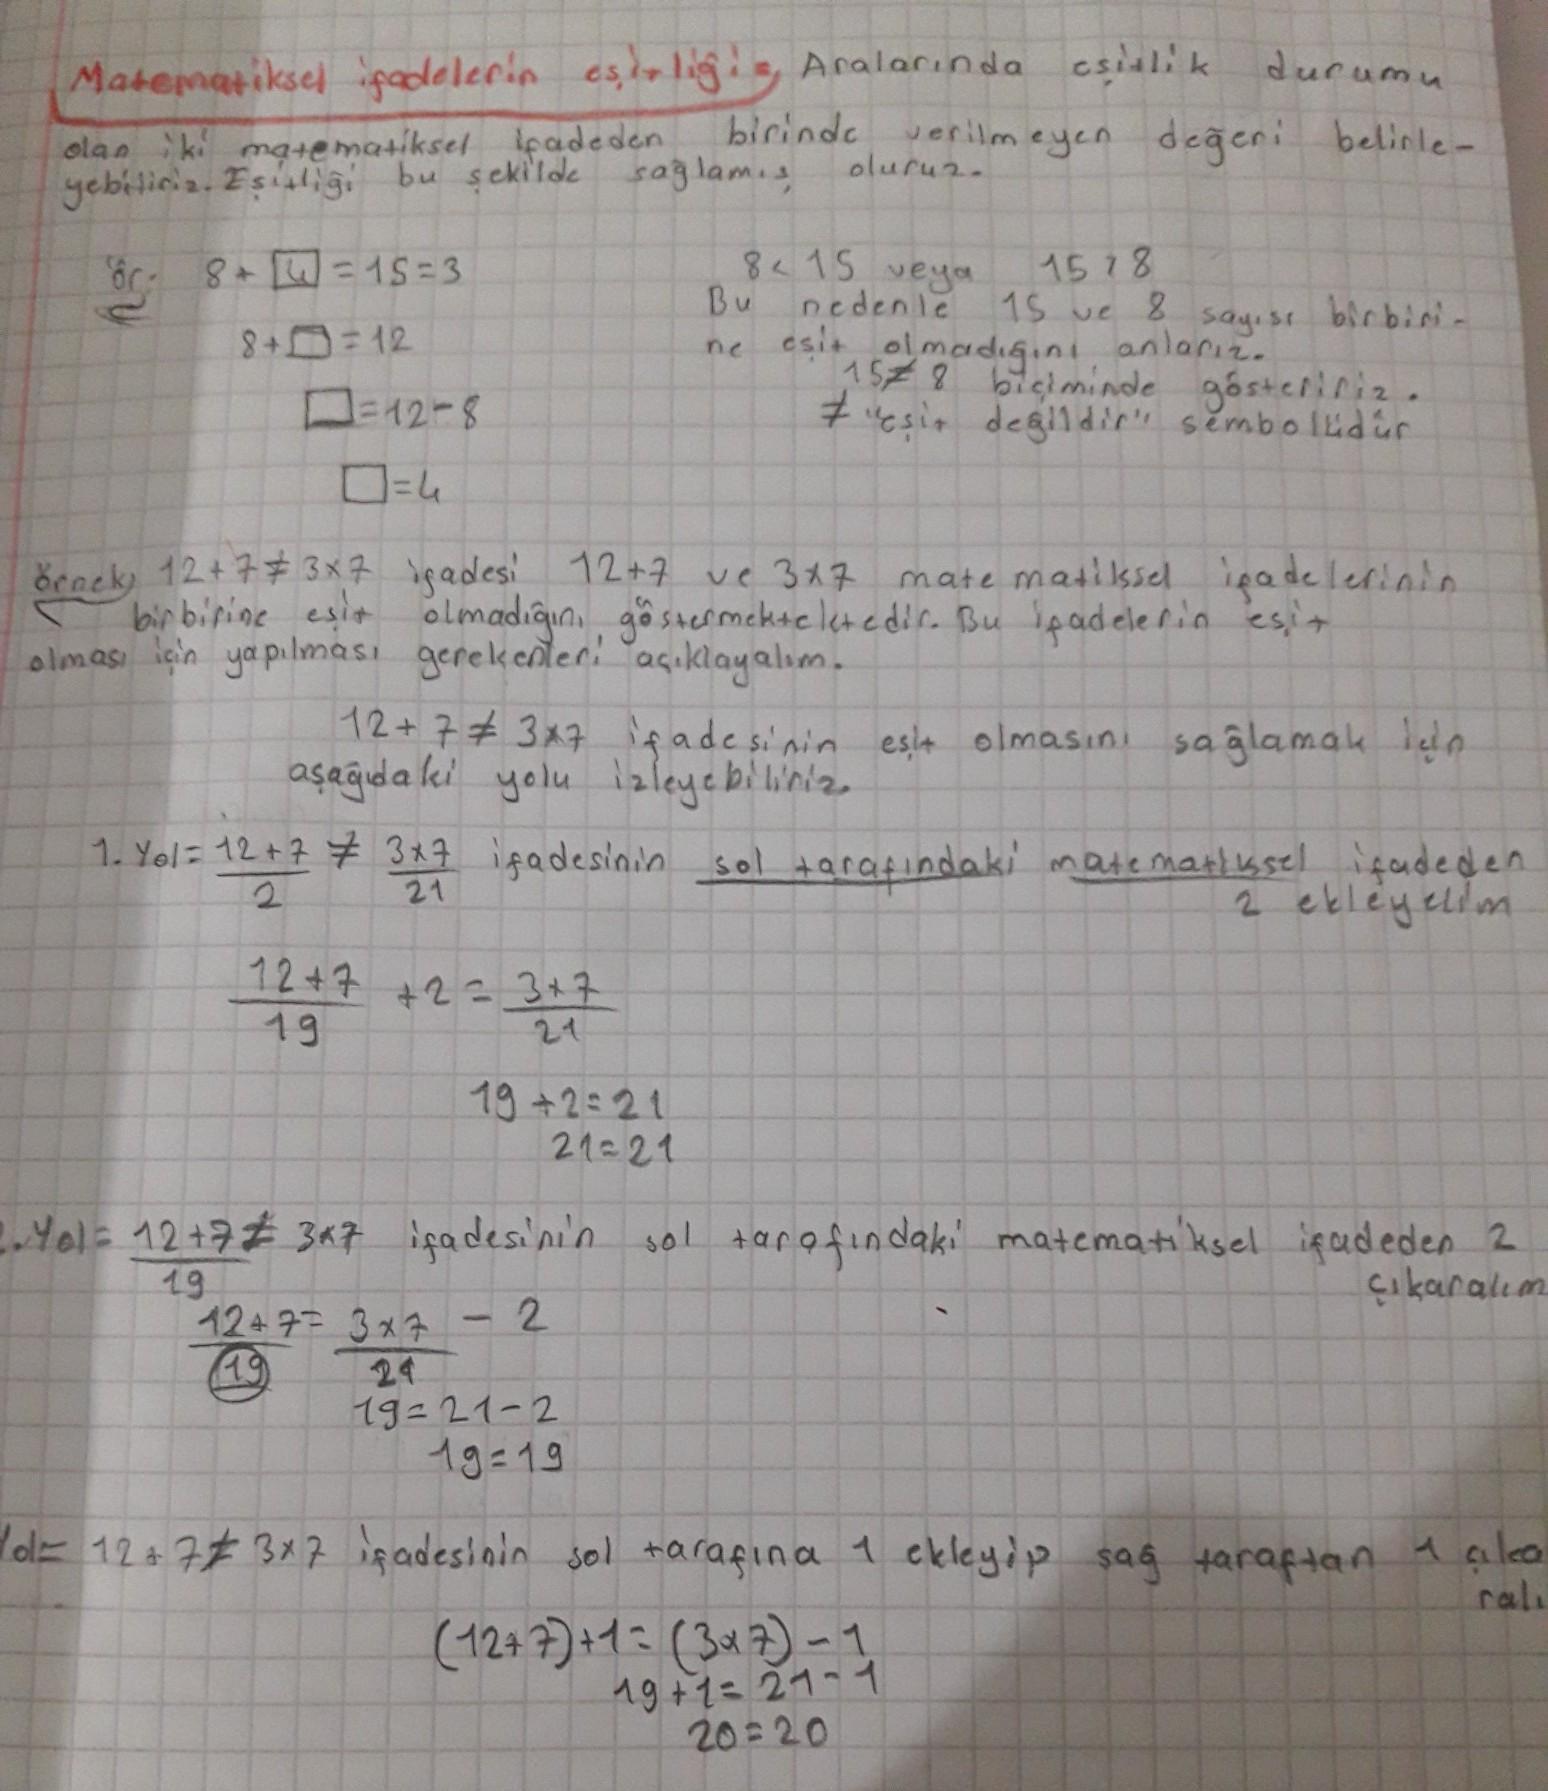 Matematiksel ifadelerin eşitliği = Aralarında eşitlik durumu
olan iki matematiksel ifadeden birinde verilmeyen değeri belirle-
yebiliriz. Eşitliği bu şekilde sağlamış oluruz.
Ör: 8 + 4 = 15 = 3
8 + □ = 12
□ = 12 - 8
□ = 4
8 < 15 veya 15 > 8
Bu nedenle 15 ve 8 sayısı birbiri-
ne eşit olmadığını anlarız.
15 ≠ 8 biçiminde gösteririz.
≠ "eşit değildir" sembollüdür
Örnek) 12 + 7 ≠ 3x7 ifadesi 12+7 ve 3x7 matematikssel ifadelerinin
birbirine eşit olmadığını göstermektektedir. Bu ifadelerin eşit
olması için yapılması gerekenleri açıklayalım.
12 + 7 ≠ 3x7 ifadesinin eşit olmasını sağlamak için
aşağıdaki yolu izleyebiliriz.
1. Yol = 12 + 7 ≠ 3x7 ifadesinin sol tarafındaki matematiksel ifadeden
2 21 2 ekleyelim
12 + 7 + 2 = 3x7
19 21
19 + 2 = 21
21 = 21
2. Yol = 12 + 7 ≠ 3x7 ifadesinin sol tarafındaki matematiksel ifadeden 2
19 çıkaralım
12 + 7 = 3x7 - 2
19 21
19 = 21 - 2
19 = 19
Yol = 12 + 7 ≠ 3x7 ifadesinin sol tarafına 1 ekleyip sağ taraftan 1 çıka
ralı
(12+7)+1 = (3x7) - 1
19 + 1 = 21 - 1
20 = 20